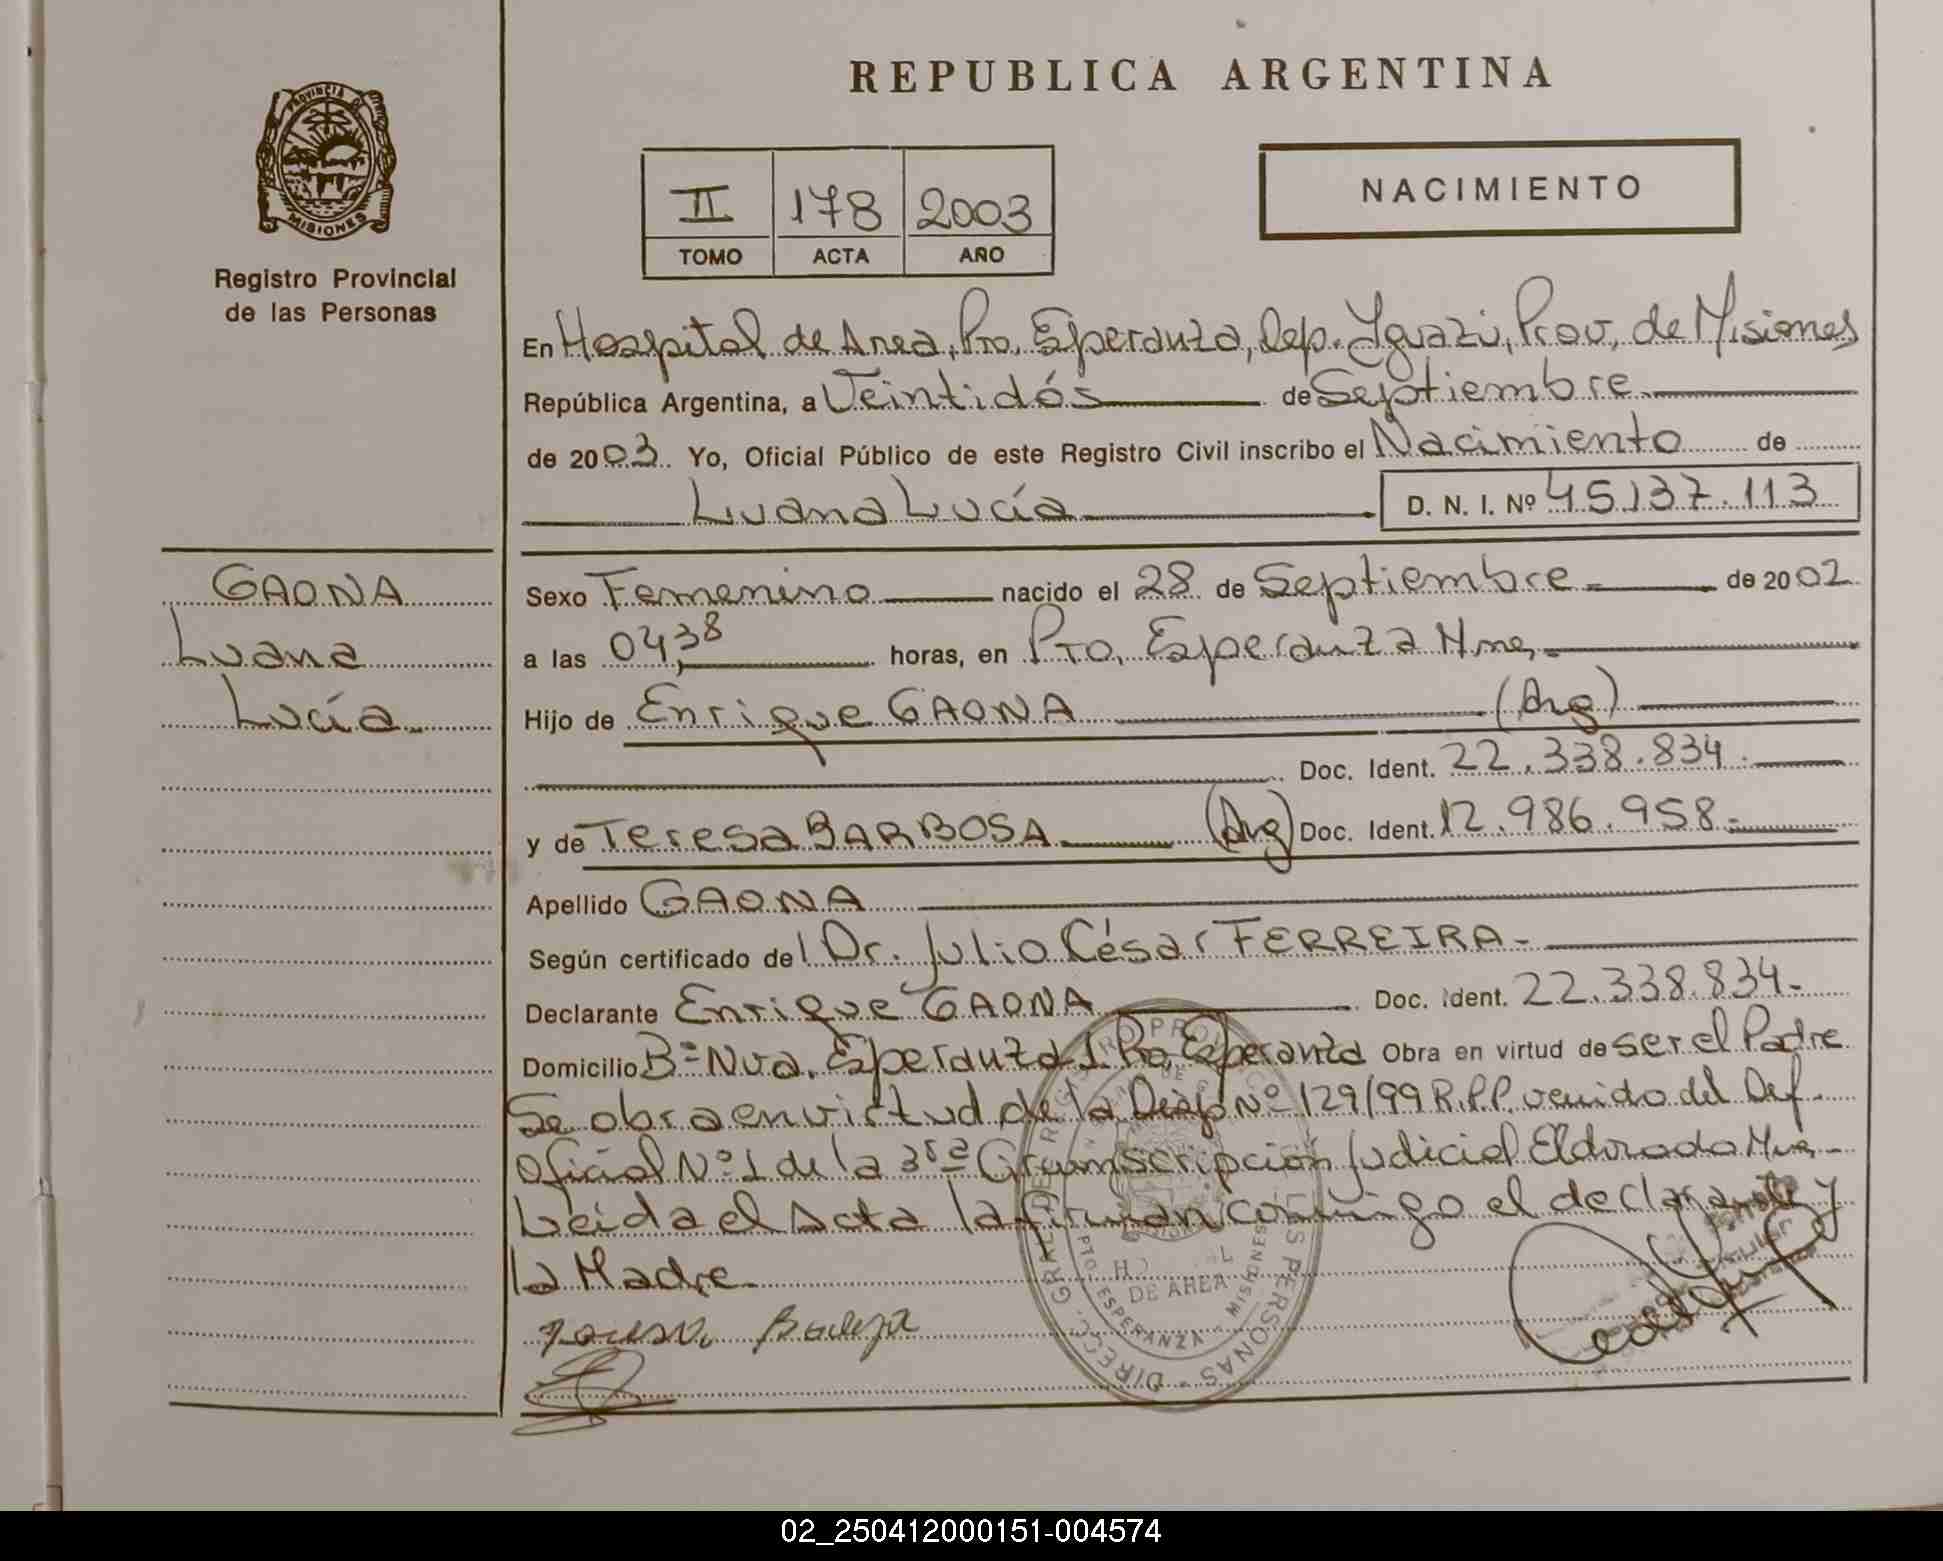 REPUBLICA ARGENTINA
PROVINCIA DE
MISIONES
Registro Provincial
de las Personas
II 178 2003
TOMO ACTA AÑO
NACIMIENTO
En Hospital de Area, Pto. Esperanza, Dep. Iguazú, Prov, de Misiones
República Argentina, a Veintidós de Septiembre
de 2003 Yo, Oficial Público de este Registro Civil inscribo el Nacimiento de
Luana Lucía D. N. I. Nº 45.137.113
GAONA
Luana
Lucía
Sexo Femenino nacido el 28 de Septiembre de 2002
a las 04,38 horas, en Pto. Esperanza Mnes
Hijo de Enrique GAONA (Arg)
Doc. Ident. 22.338.834.
y de Teresa BARBOSA (Arg) Doc. Ident. 12.986.958.-
Apellido GAONA
Según certificado del Dr. Julio César FERREIRA-
Declarante Enrique GAONA Doc. Ident. 22.338.834-
Domicilio Bº Nva. Esperanza 1 Pto. Esperanza Obra en virtud de ser el Padre
Se obra en virtud de la Disp Nº 129/99 R.P.P. venido del Def.
Oficial Nº 1 de la 3ra Circunscripción Judicial Eldorado Mnes-
Leida el Acta la firman conmigo el declarante y
la Madre.
DE AREA
PTO. ESPERANZA - MISIONES
02_250412000151-004574